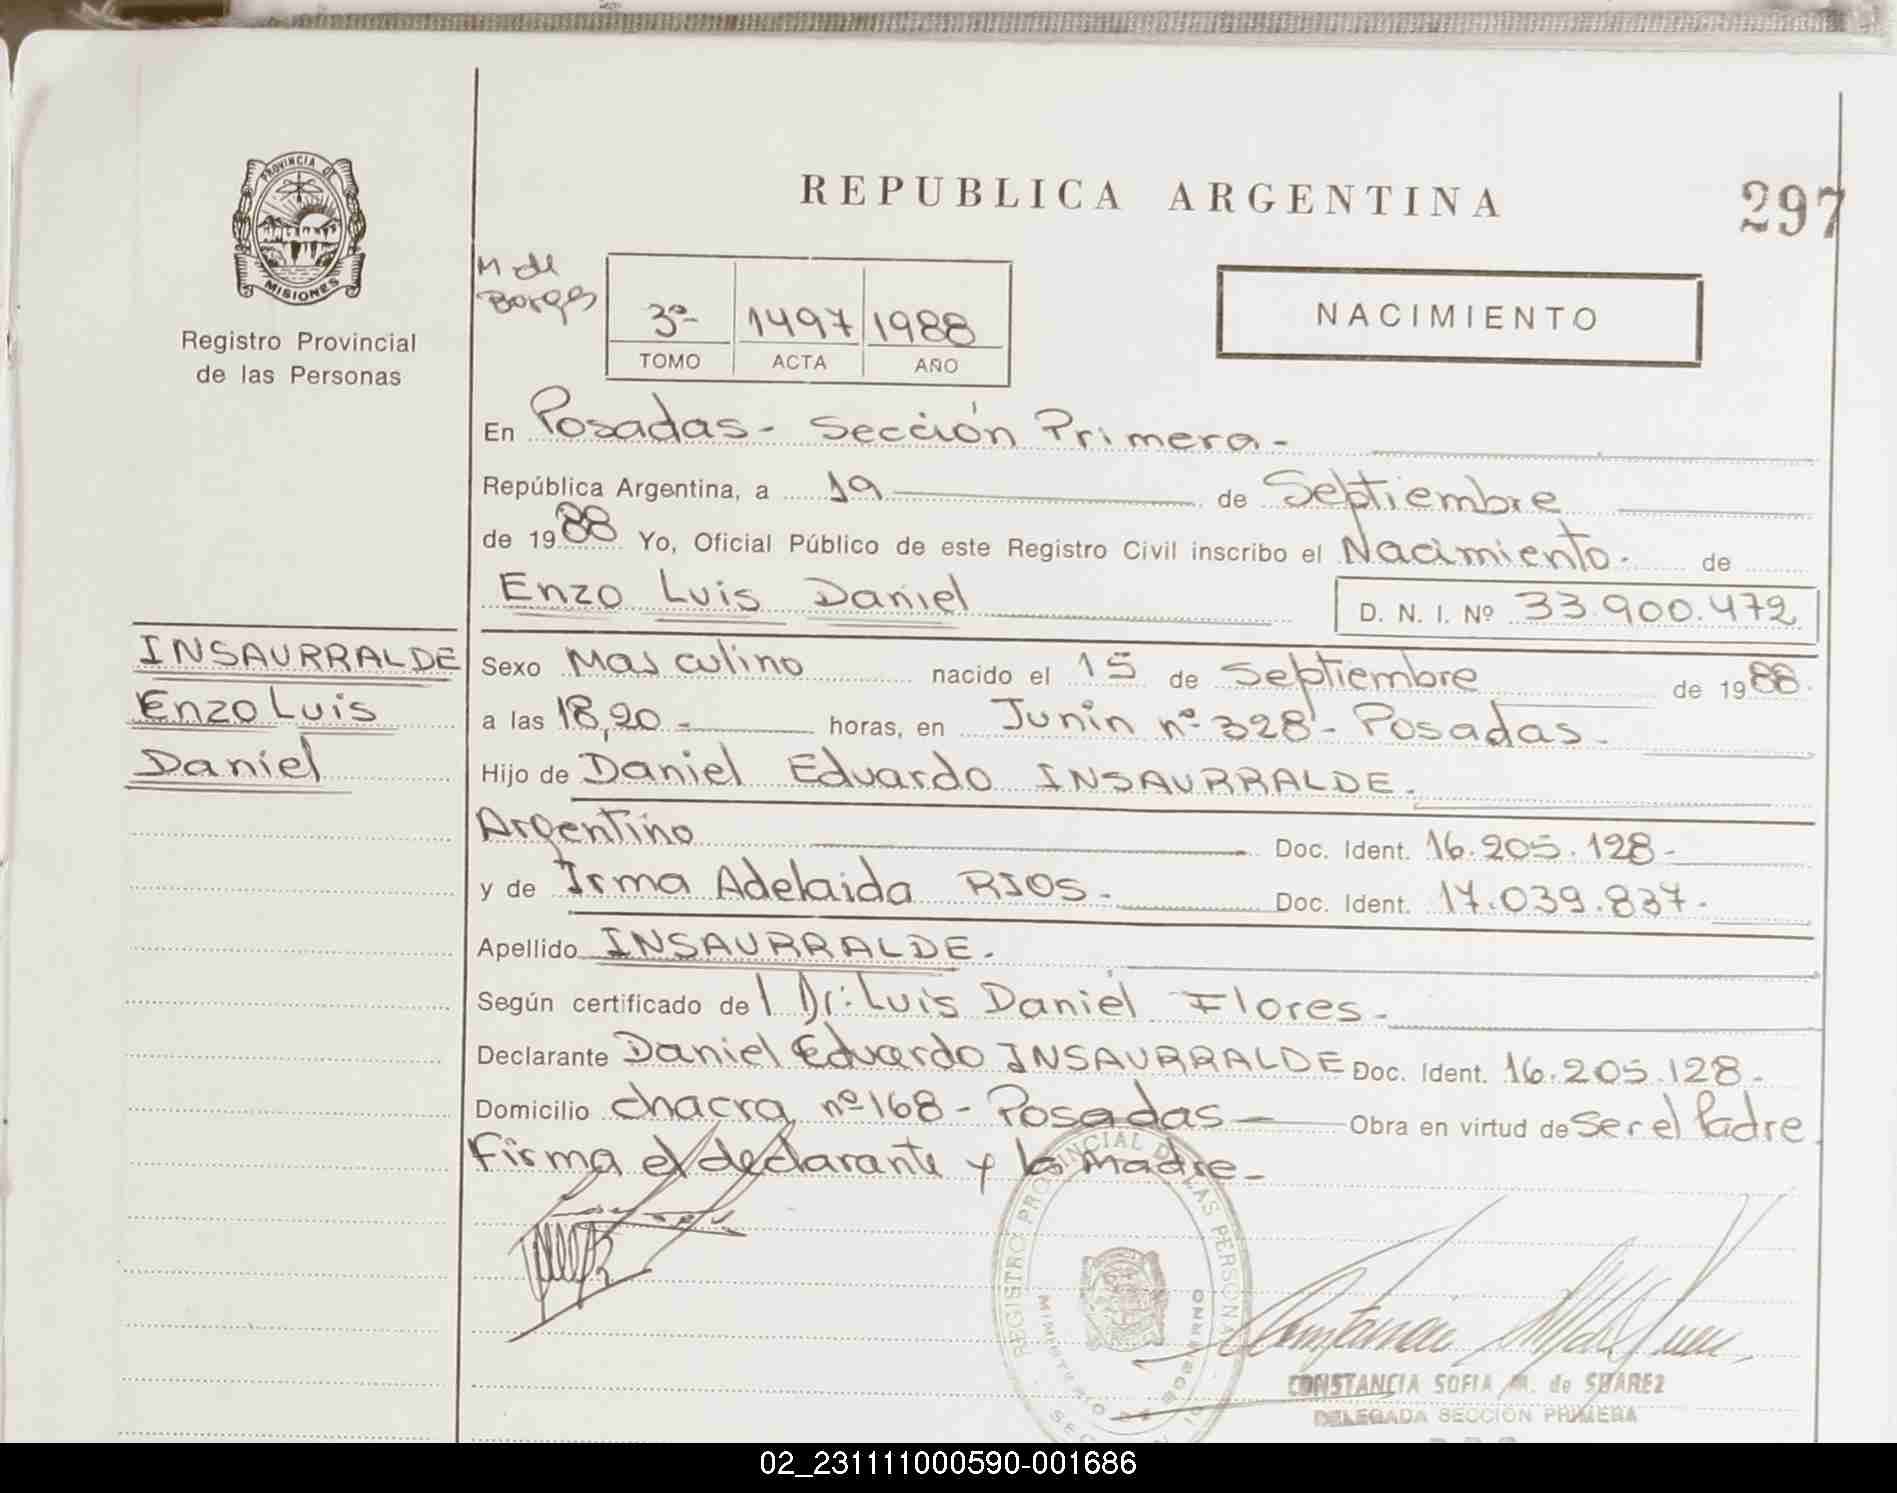 PROVINCIA DE
MISIONES
Registro Provincial
de las Personas
REPUBLICA ARGENTINA
297
M de
Borges
3º 1497 1988
TOMO ACTA AÑO
NACIMIENTO
En Posadas - Sección Primera -
República Argentina, a 19 de Septiembre
de 1988 Yo, Oficial Público de este Registro Civil inscribo el Nacimiento. de
Enzo Luis Daniel D. N. I. Nº 33.900.472
INSAURRALDE
Enzo Luis
Daniel
Sexo Masculino nacido el 15 de Septiembre de 1988.
a las 18,20 - horas, en Junin nº 328 - Posadas -
Hijo de Daniel Eduardo INSAURRALDE.
Argentino Doc. Ident. 16.205.128 -
y de Irma Adelaida RIOS - Doc. Ident. 17.039.837 -
Apellido INSAURRALDE.
Según certificado de l Dr: Luis Daniel Flores -
Declarante Daniel Eduardo INSAURRALDE Doc. Ident. 16.205.128 -
Domicilio chacra nº 168 - Posadas - Obra en virtud de Ser el Padre.
Firma el declarante y la madre -
REGISTRO PROVINCIAL DE LAS PERSONAS
MINISTERIO DE GOBIERNO
CONSTANCIA SOFIA M. de SUAREZ
DELEGADA SECCION PRIMERA
02_231111000590-001686